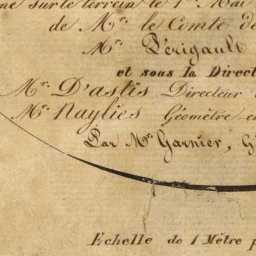 sur le terrein le 1er Mai
de Mr. le Comte de
Mr. Périgault
et sous la Direct
Mr. D'astis Directeur
Mr. Naylies Géomètre en
Par Mr. Garnier, G
Echelle de 1 Mètre p